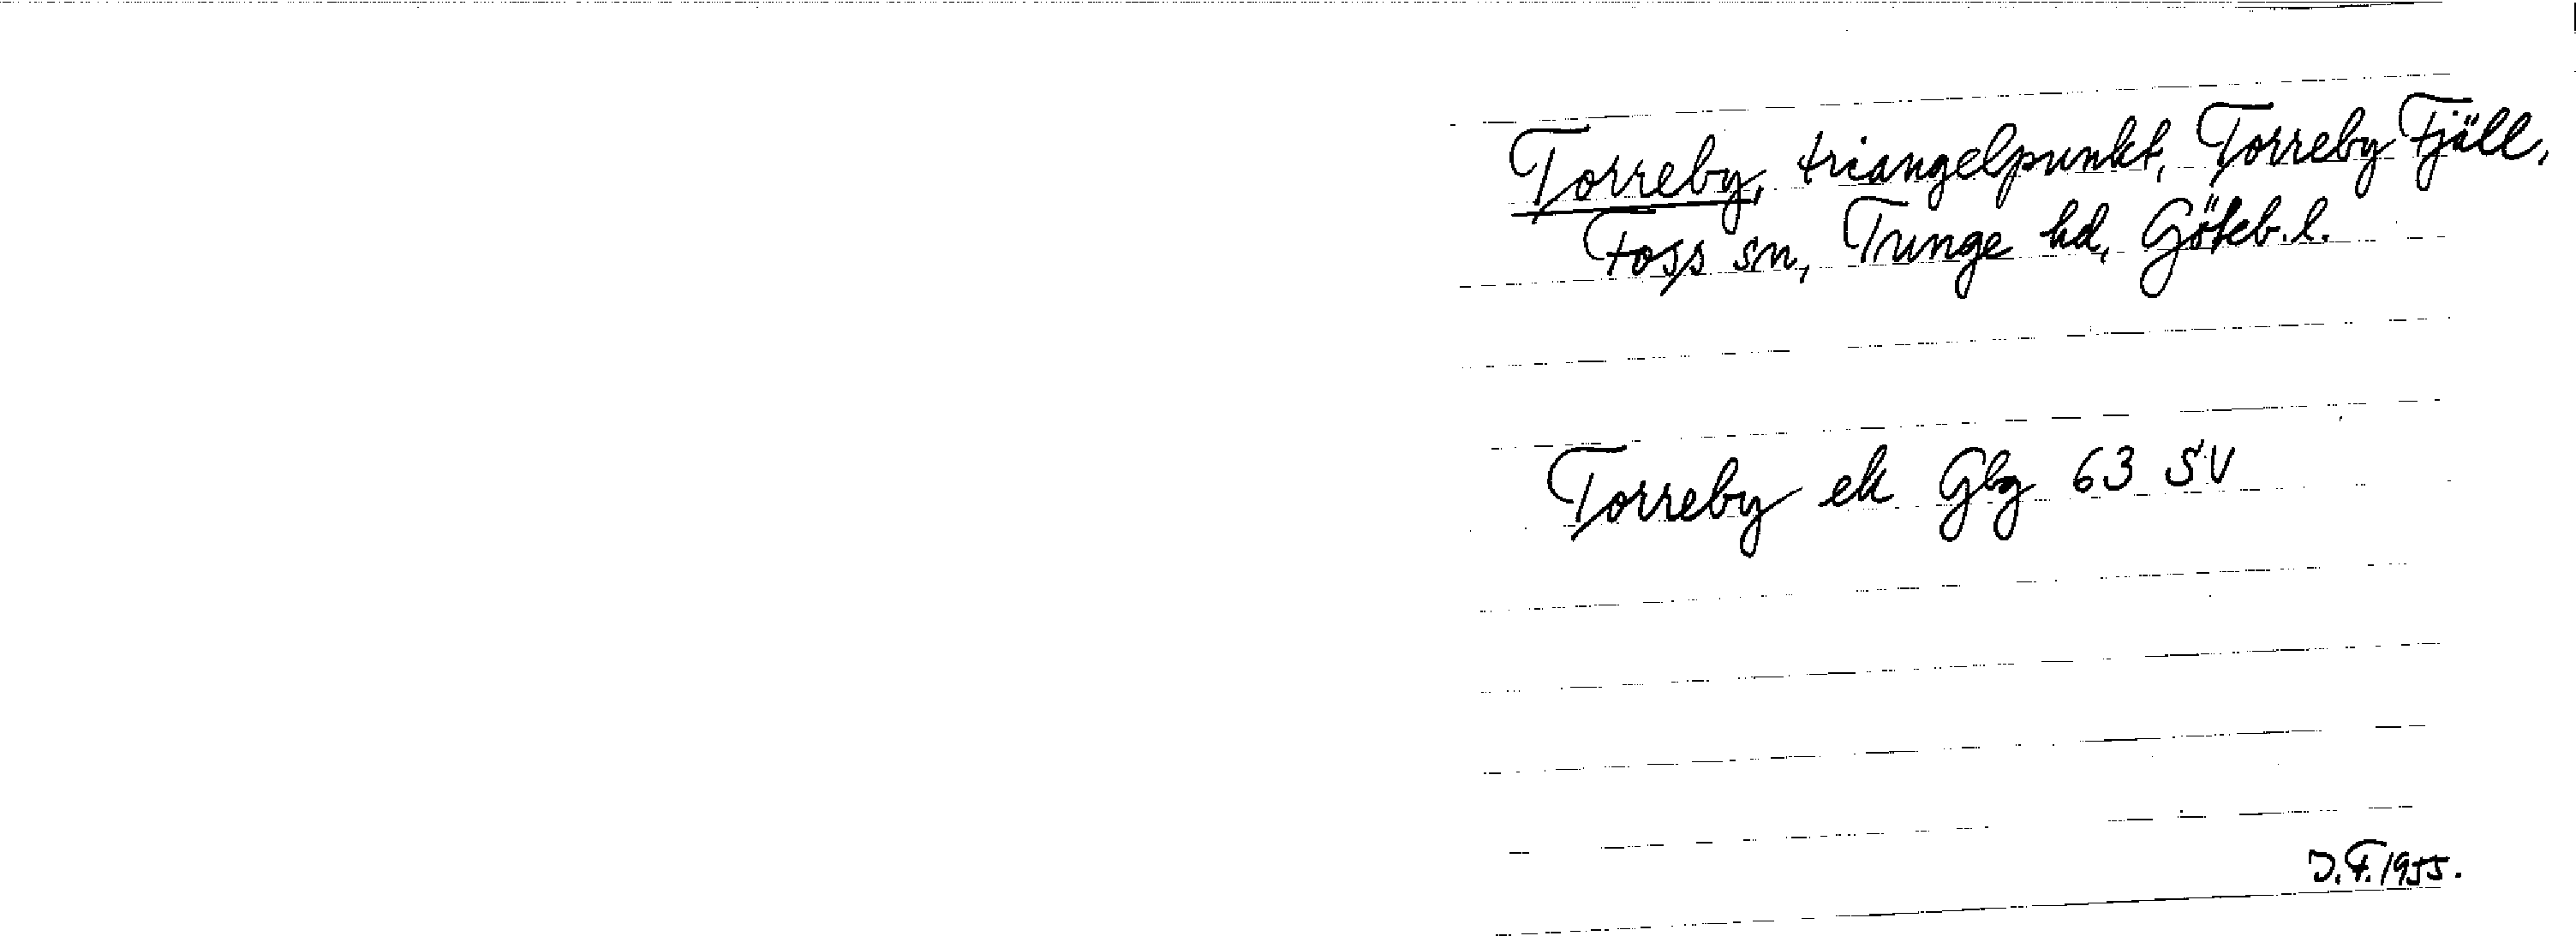 Torreby, triangelpunkt, Torreby Fjäll,
Foss sn, Tunge hd, Göteb. l.
Torreby ek Gbg 63 SV
J.F. 1955.